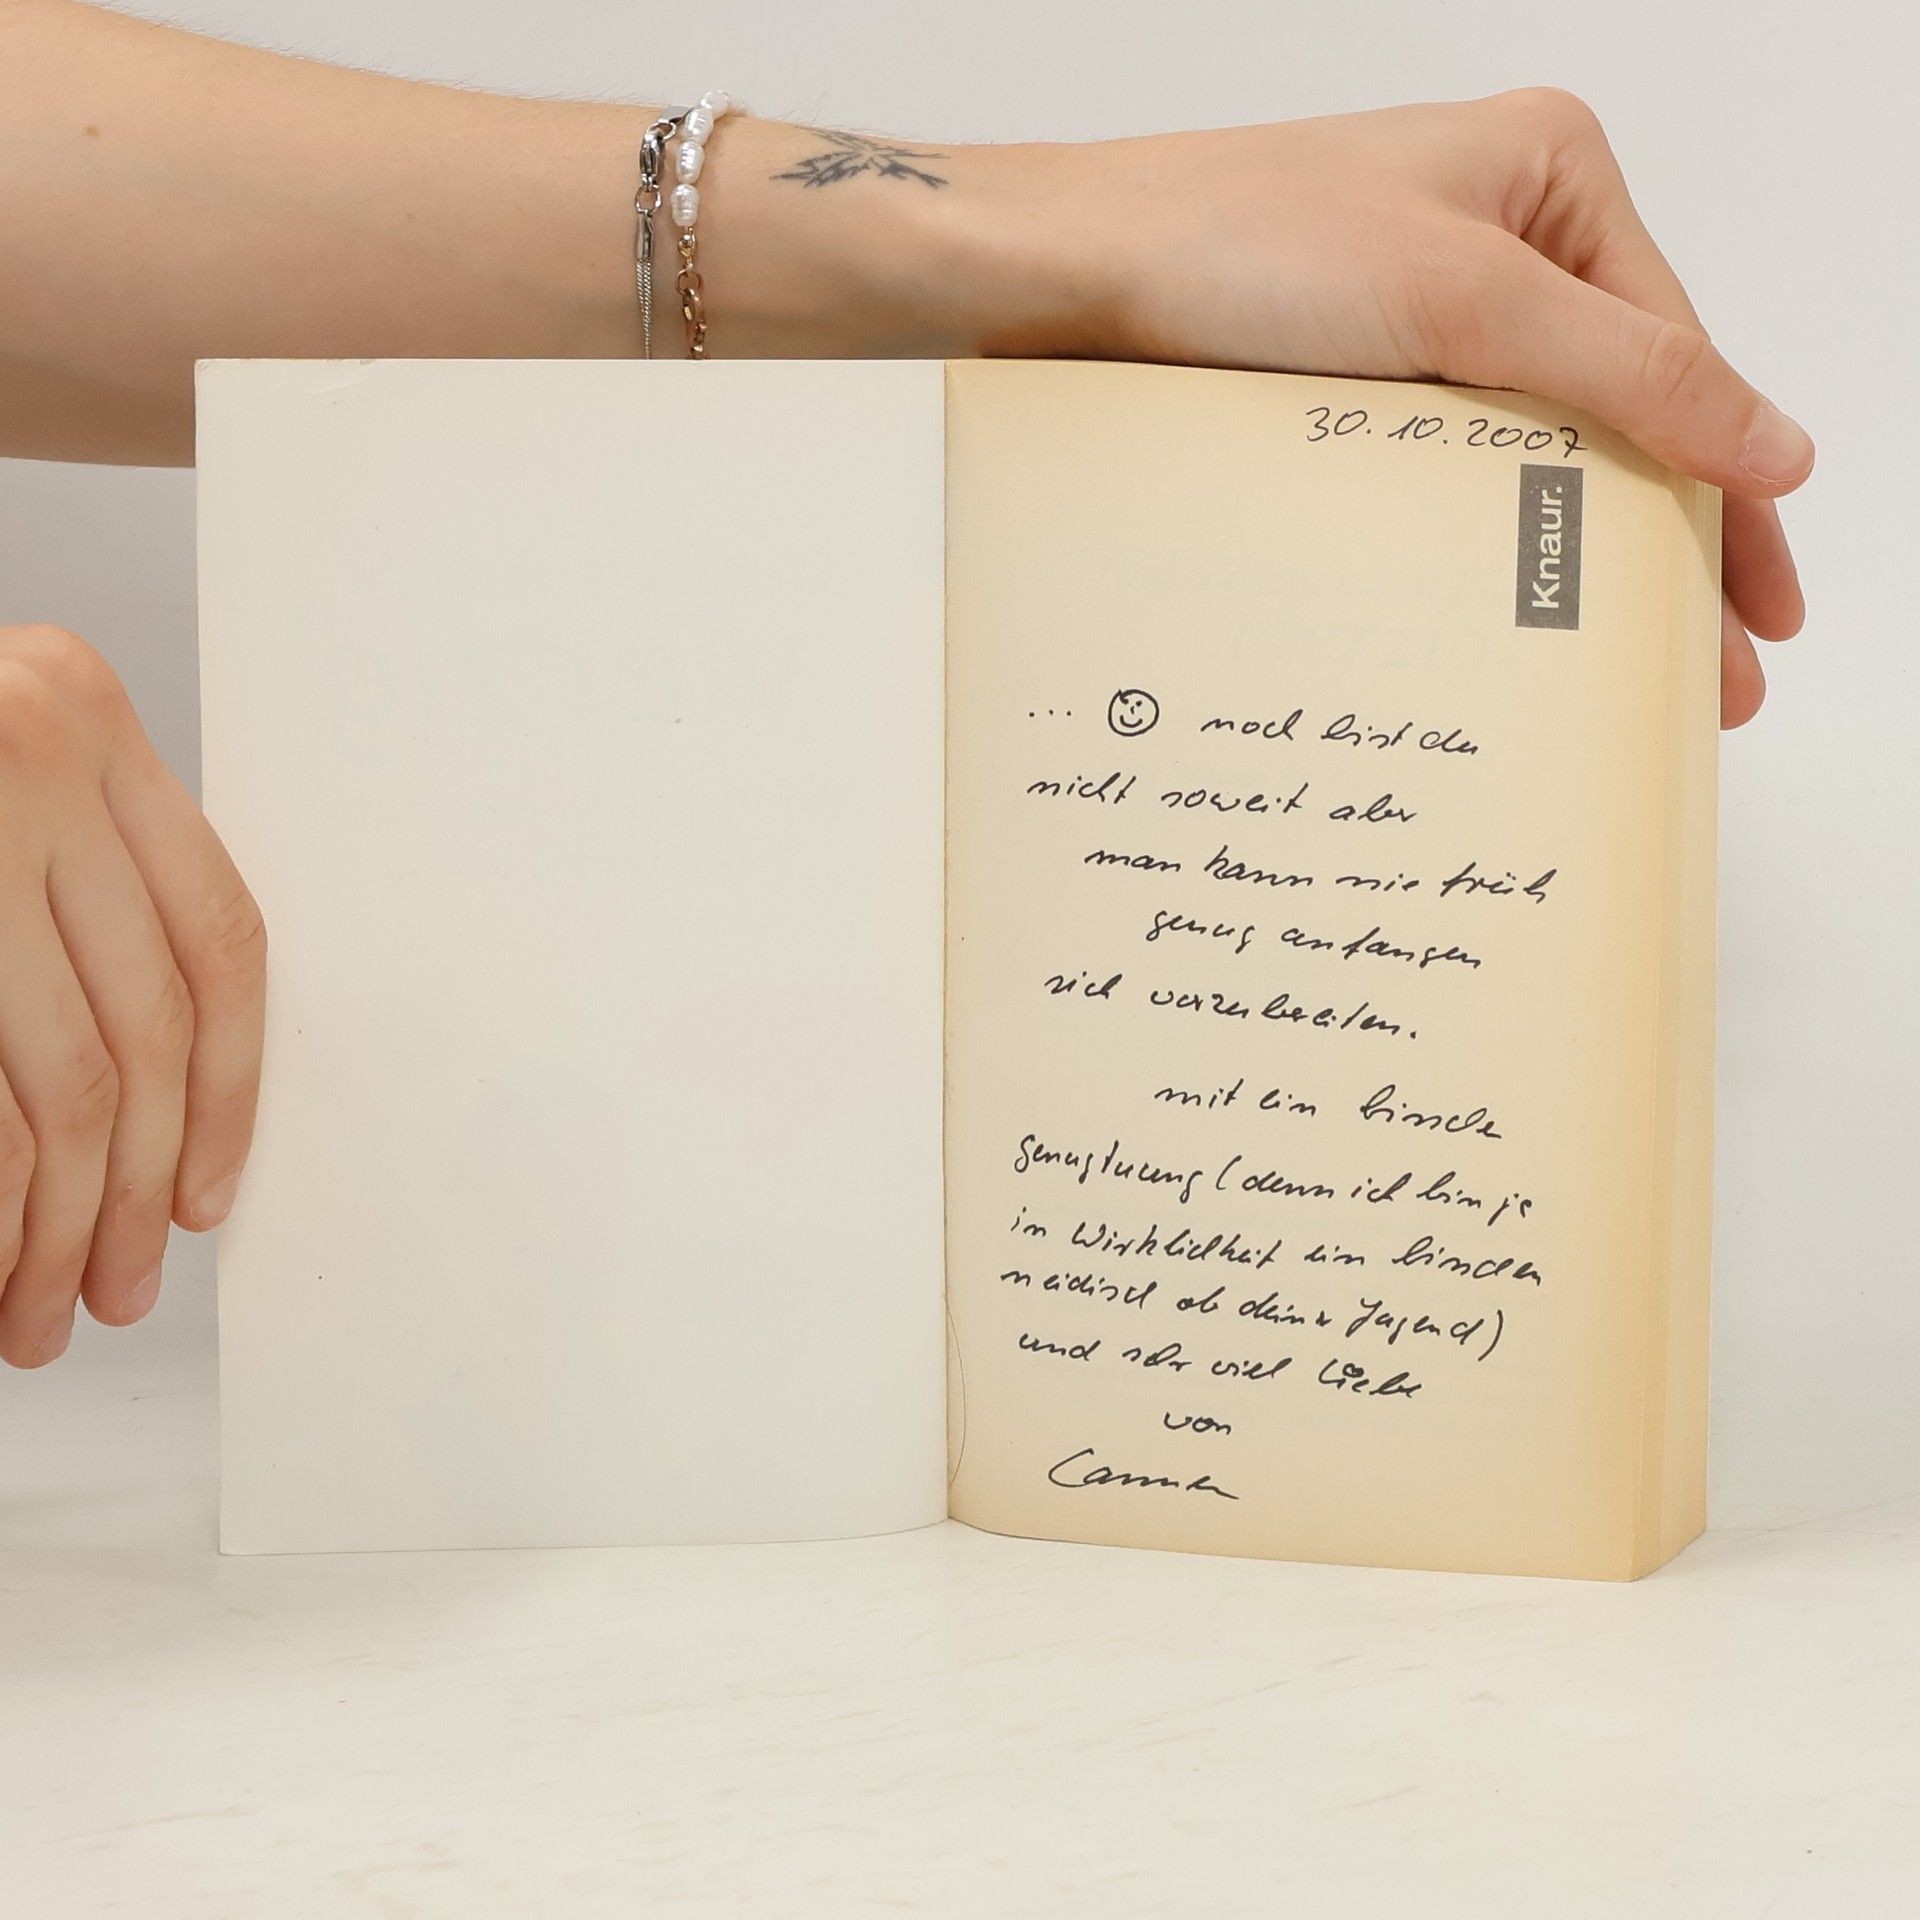 30.10.2007
Knaur.
... noch bist du
nicht soweit aber
man kann nie früh
genug anfangen
sich vorzubereiten.
mit ein bisschen
genugtuung (denn ich bin ja
in Wirklichkeit ein bisschen
neidisch ob deiner Jugend)
und sehr viel Liebe
von
Carmen